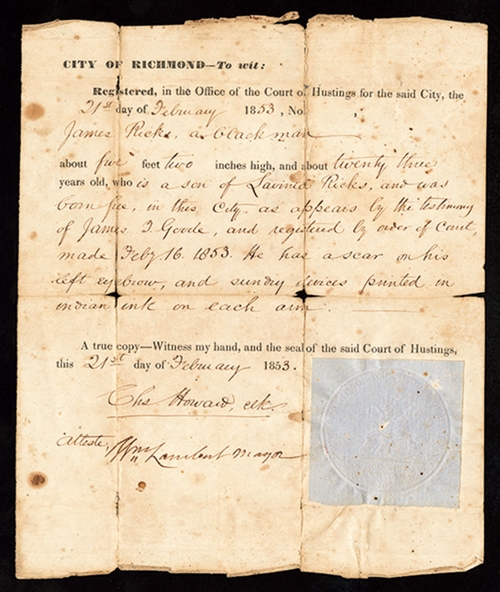 CITY OF RICHMOND—To wit:
Registered, in the Office of the Court of Hustings for the said City, the
21st day of February 1853, No.
James Ricks, a black man
about five feet two inches high, and about twenty three
years old, who is a son of Lavinia Ricks, and was
born free, in this City, as appears by the testimony
of James T. Goode, and registered by order of Court,
made Feby 16. 1853. He has a scar on his
left eyebrow, and sundry devices printed in
indian ink on each arm.
A true copy—Witness my hand, and the seal of the said Court of Hustings,
this 21st day of February 1853.
Chs Howard, clk.
Atteste,
Wm Lambert Mayor